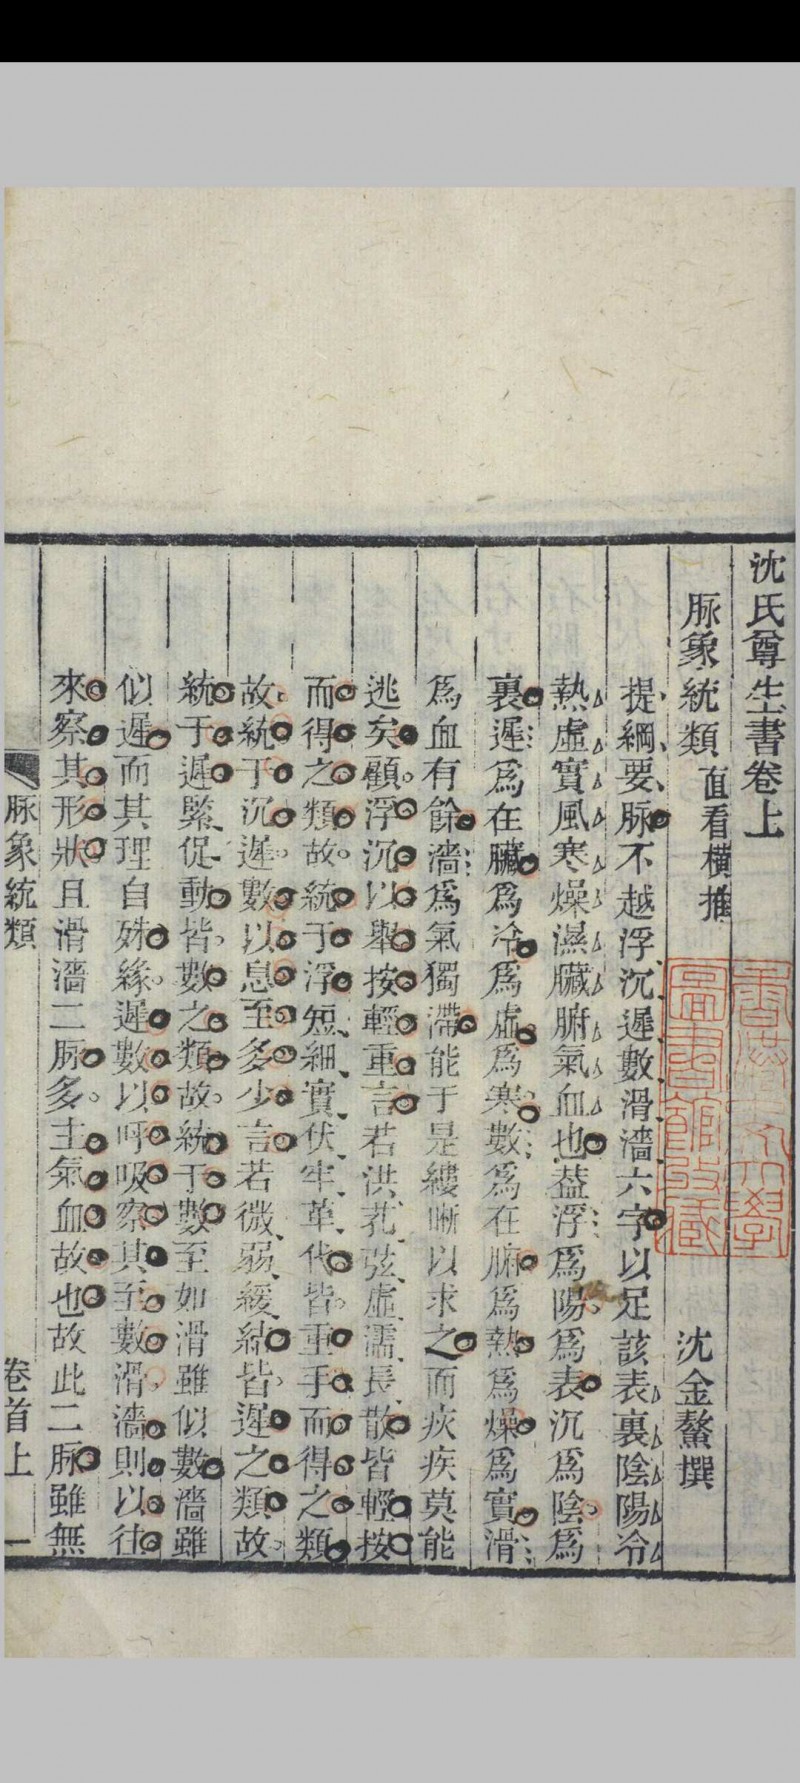 沈氏尊生書卷上
脉象統類 直看橫推 沈金鰲撰
提綱要脉不越浮沉遲數滑濇六字以足該表裏陰陽冷
熱虛實風寒燥濕臟腑氣血也葢浮爲陽爲表沉爲陰爲
裏遲爲在臟爲冷爲虛爲寒數爲在腑爲熱爲燥爲實滑
爲血有餘濇爲氣獨滯能于是縷晰以求之而疢疾莫能
逃矣顧浮沉以舉按輕重言若洪芤弦虛濡長散皆輕按
而得之類故統于浮短細實伏牢革代皆重手而得之類
故統于沉遲數以息至多少言若微弱緩結皆遲之類故
統于遲緊促動皆數之類故統于數至如滑雖似數濇雖
似遲而其理自殊緣遲數以呼吸察其至數滑濇則以往
來察其形狀且滑濇二脉多主氣血故也故此二脉雖無
脉象統類 卷首上 一